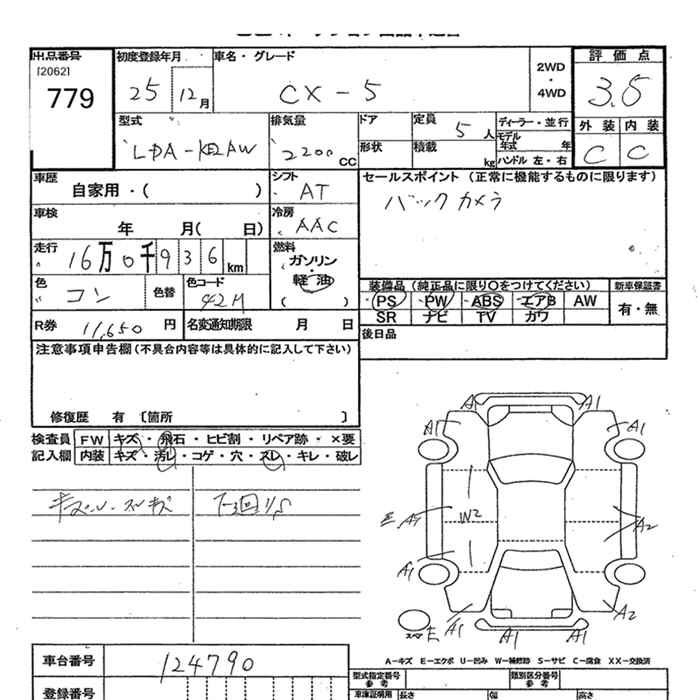 出品番号
[2062]
779
初度登録年月
25 12月
車名・グレード
CX-5
2WD
・
4WD
評価点
3.5
外装 内装
C C
型式
LDA-KE2AW
排気量
2200 CC
ドア
形状
定員 5人
積載 kg
ディーラー・並行
モデル年式 年
ハンドル 左・右
車歴
自家用・( )
シフト
AT
セールスポイント (正常に機能するものに限ります)
バックカメラ
車検
年 月( 日)
冷房
AAC
走行
16万0千936km
燃料
ガソリン
・
軽油
( )
色
コン
色替
色コード
42M
装備品 (純正品に限り○をつけてください)
PS PW ABS エアB AW
SR ナビ TV カワ
新車保証書
有・無
R券 11,650 円
名変通知期限 月 日
後日品
注意事項申告欄 (不具合内容等は具体的に記入して下さい)
修復歴 有 〔箇所 〕
検査員
記入欄
FW キズ・飛石・ヒビ割・リペア跡・×要
内装 キズ・汚レ・コゲ・穴・スレ・キレ・破レ
A1 A1
A1 A1
W2
A2
A1
A1 A2
スペア
E A1 A1 A1
A-キズ E-エクボ U-凹み W-補修跡 S-サビ C-腐食 XX-交換済
車台番号
124790
登録番号
型式指定番号
参考
類別区分番号
参考
車庫証明用
長さ 幅 高さ